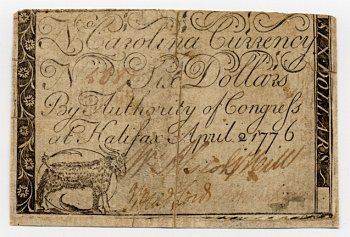 No Carolina Currency
No Six Dollars
By Authority of Congreſs
at Halifax April 2 1776
SIX DOLLARS